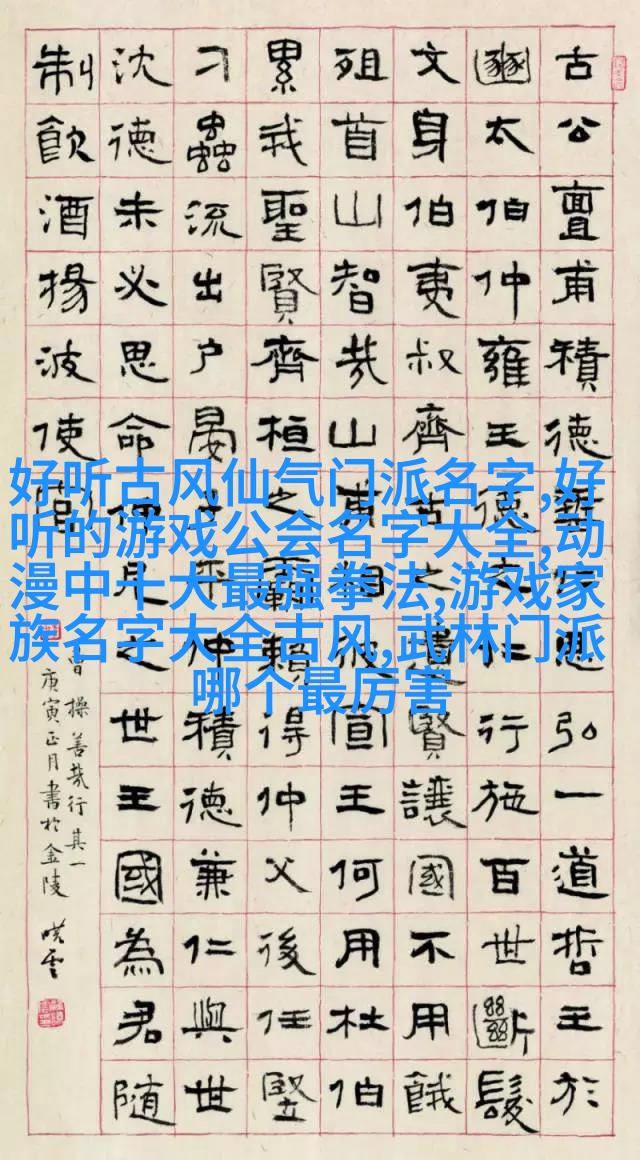 古公亶甫積德垂仁思弘一道哲王於
豳太伯仲雍王德之仁行施百世斷髮
文身伯夷叔齊古之遺賢讓國不用餓
殂首山智哉山甫相彼宣王何用杜伯
累我聖賢齊桓之霸賴得仲父後任竪
刁蟲流出户晏子平仲積德兼仁與世
沈德未必思命仲尼之世王國為君隨
制飲酒揚波使官
曹操善哉行其一
庚寅正月書於金陵
好听古风仙气门派名字,好
听的游戏公会名字大全,动
漫中十大最强拳法,游戏家
族名字大全古风,武林门派
哪个最厉害